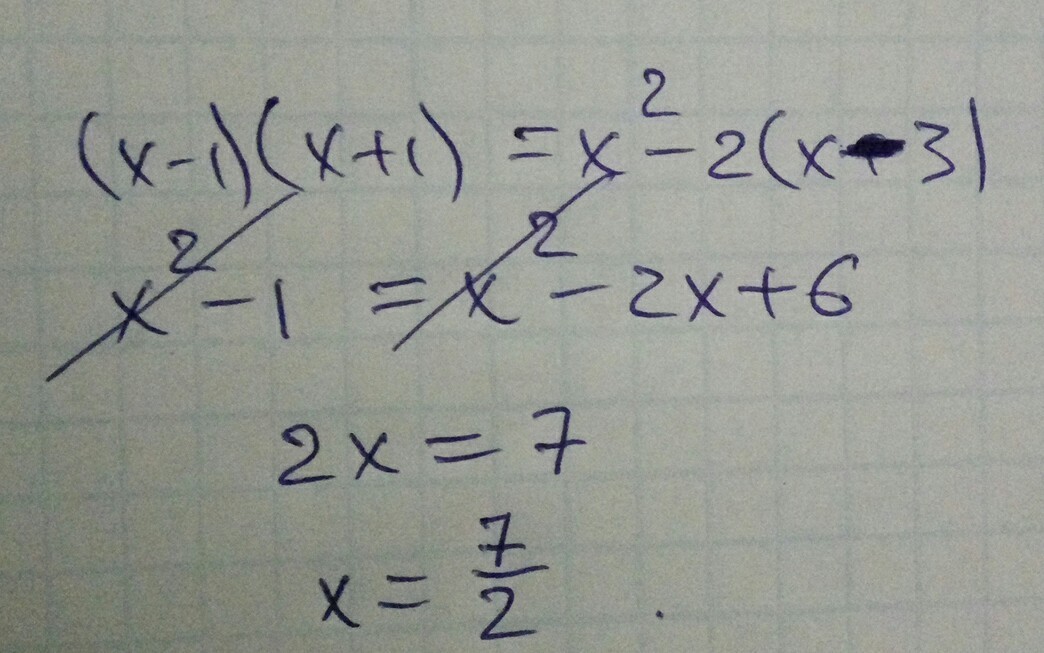 (x-1)(x+1) = x² - 2(x-3)
x² - 1 = x² - 2x + 6
2x = 7
x = 7/2 .